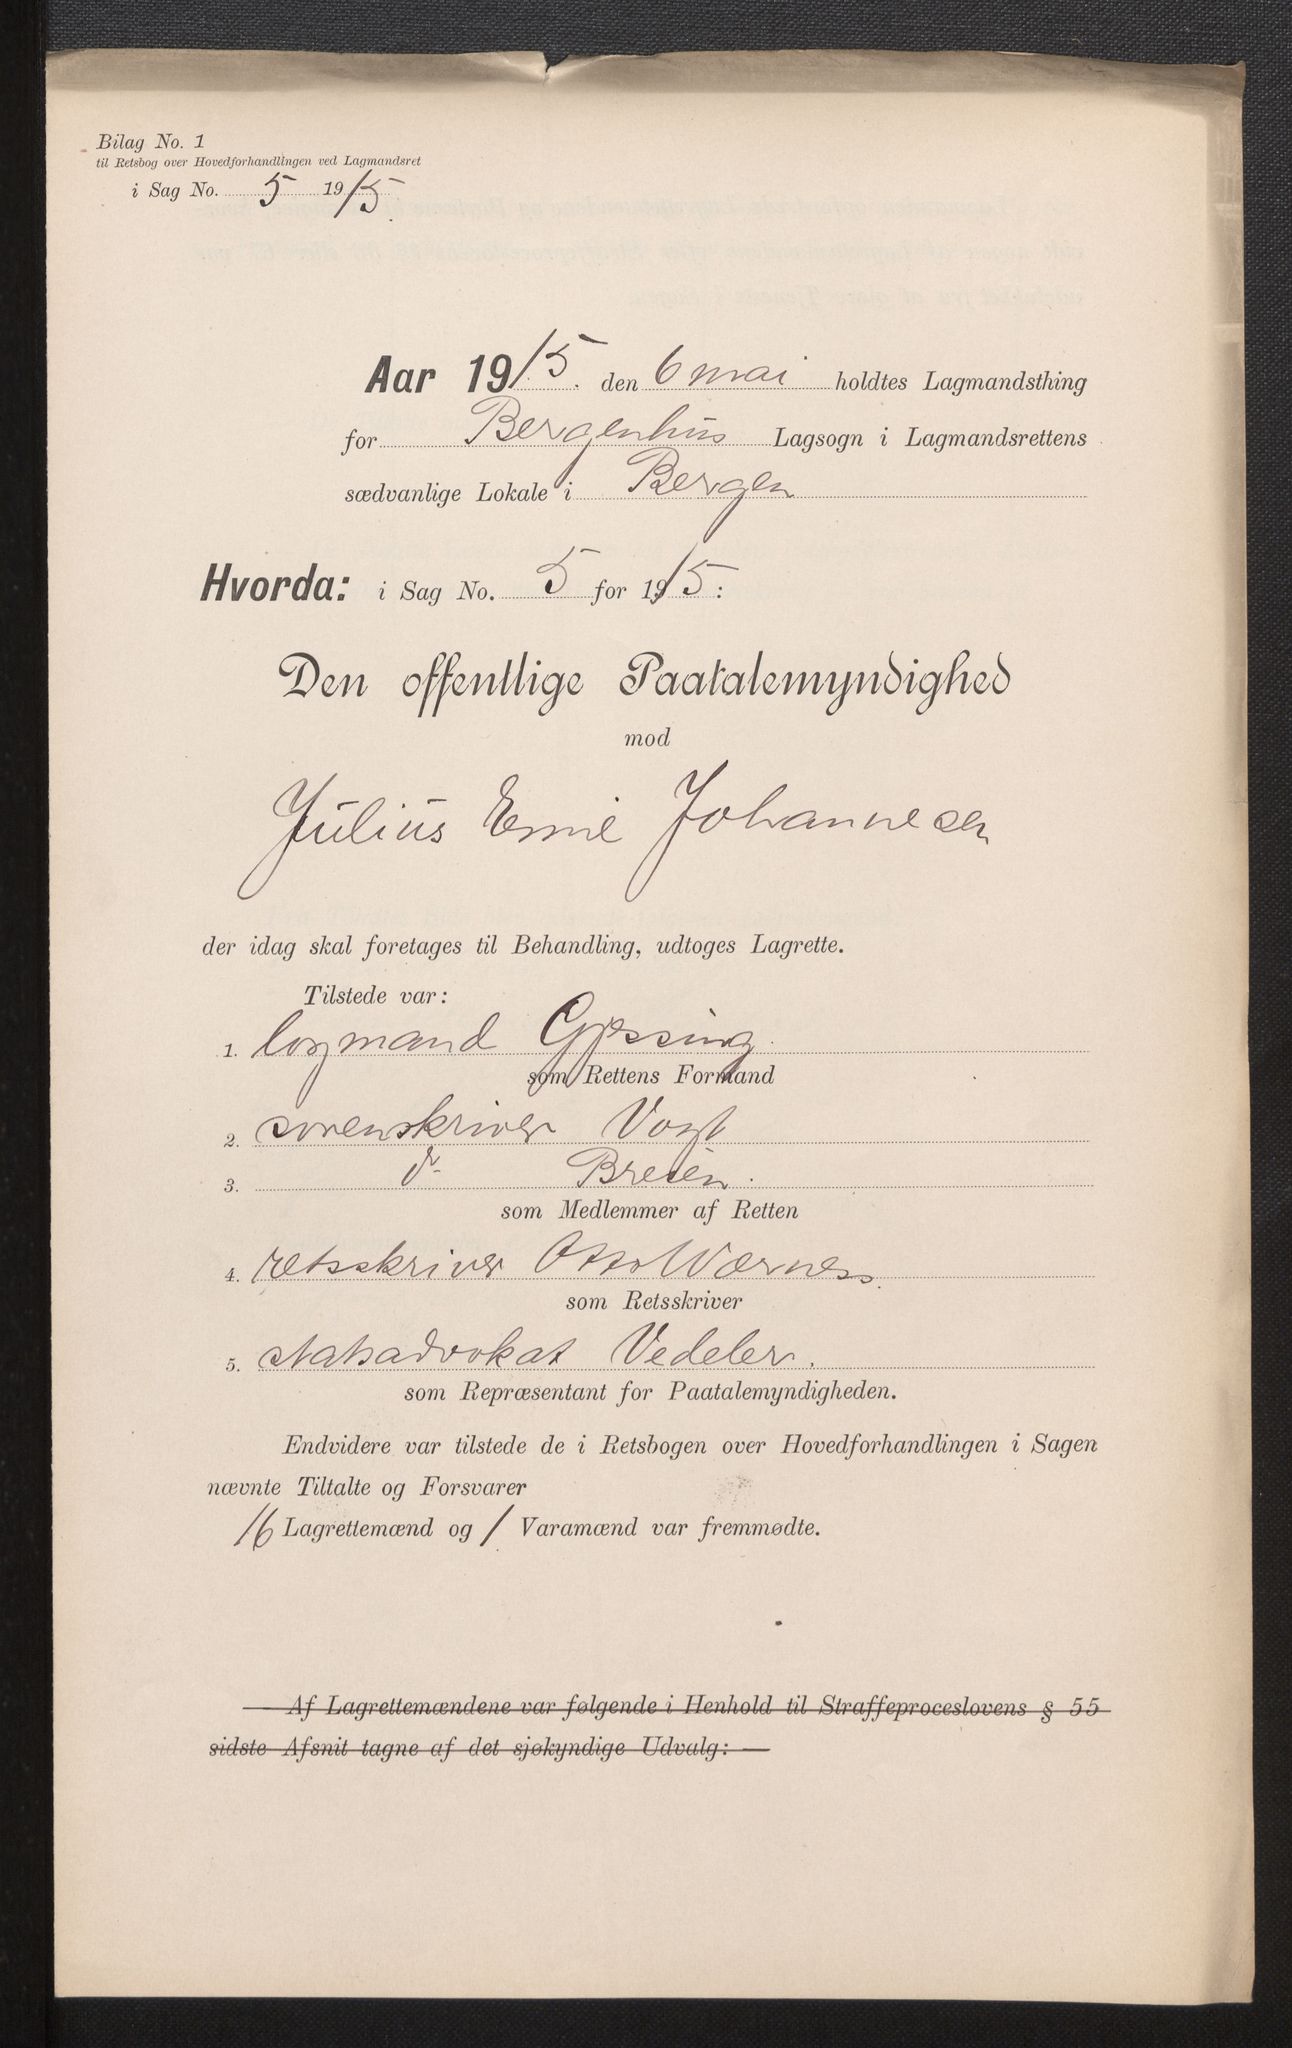 Bilag No. 1
til Retsbog over Hovedforhandlingen ved Lagmandsret
i Sag No. 5 1915.
Aar 1915. den 6 mai holdtes Lagmandsthing
for Bergenhus Lagsogn i Lagmandsrettens
sædvanlige Lokale i Bergen
Hvorda: i Sag No. 5 for 1915:
Den offentlige Paatalemyndighed
mod
Julius Emil Johannesen
der idag skal foretages til Behandling, udtoges Lagrette.
Tilstede var:
1. lagmand Gjessing.
som Rettens Formand
2. sorenskriver Vogt
3. do Breien.
som Medlemmer af Retten
4. retsskriver Otto Wærness.
som Retsskriver
5. statsadvokat Vedeler.
som Repræsentant for Paatalemyndigheden.
Endvidere var tilstede de i Retsbogen over Hovedforhandlingen i Sagen
nævnte Tiltalte og Forsvarer
16 Lagrettemænd og 1 Varamænd var fremmødte.
Af Lagrettemændene var følgende i Henhold til Straffeproceslovens § 55
sidste Afsnit tagne af det sjøkyndige Udvalg: —